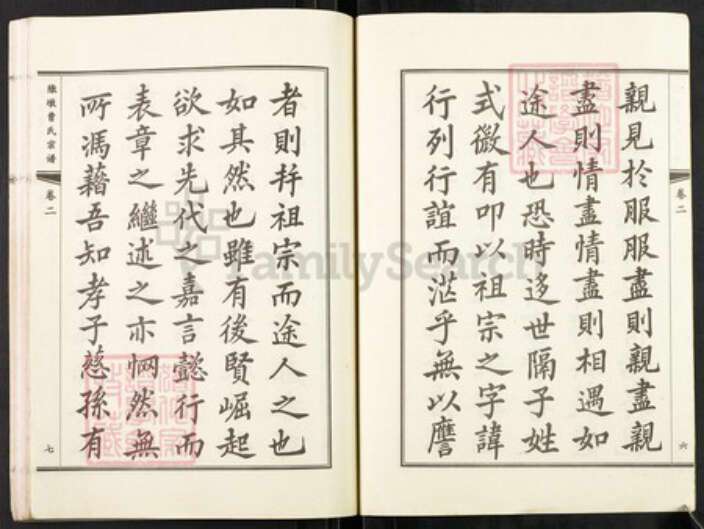 卷二
親見於服服盡則親盡親
盡則情盡情盡則相遇如
途人也恐時迻世隔子姓
式微有叩以祖宗之字諱
行列行誼而茫乎無以譍
六
者則幷祖宗而途人之也
如其然也雖有後賢崛起
欲求先代之嘉言懿行而
表章之繼述之亦惘然無
所馮藉吾知孝子慈孫有
費氏宗谱
卷二
七
FamilySearch